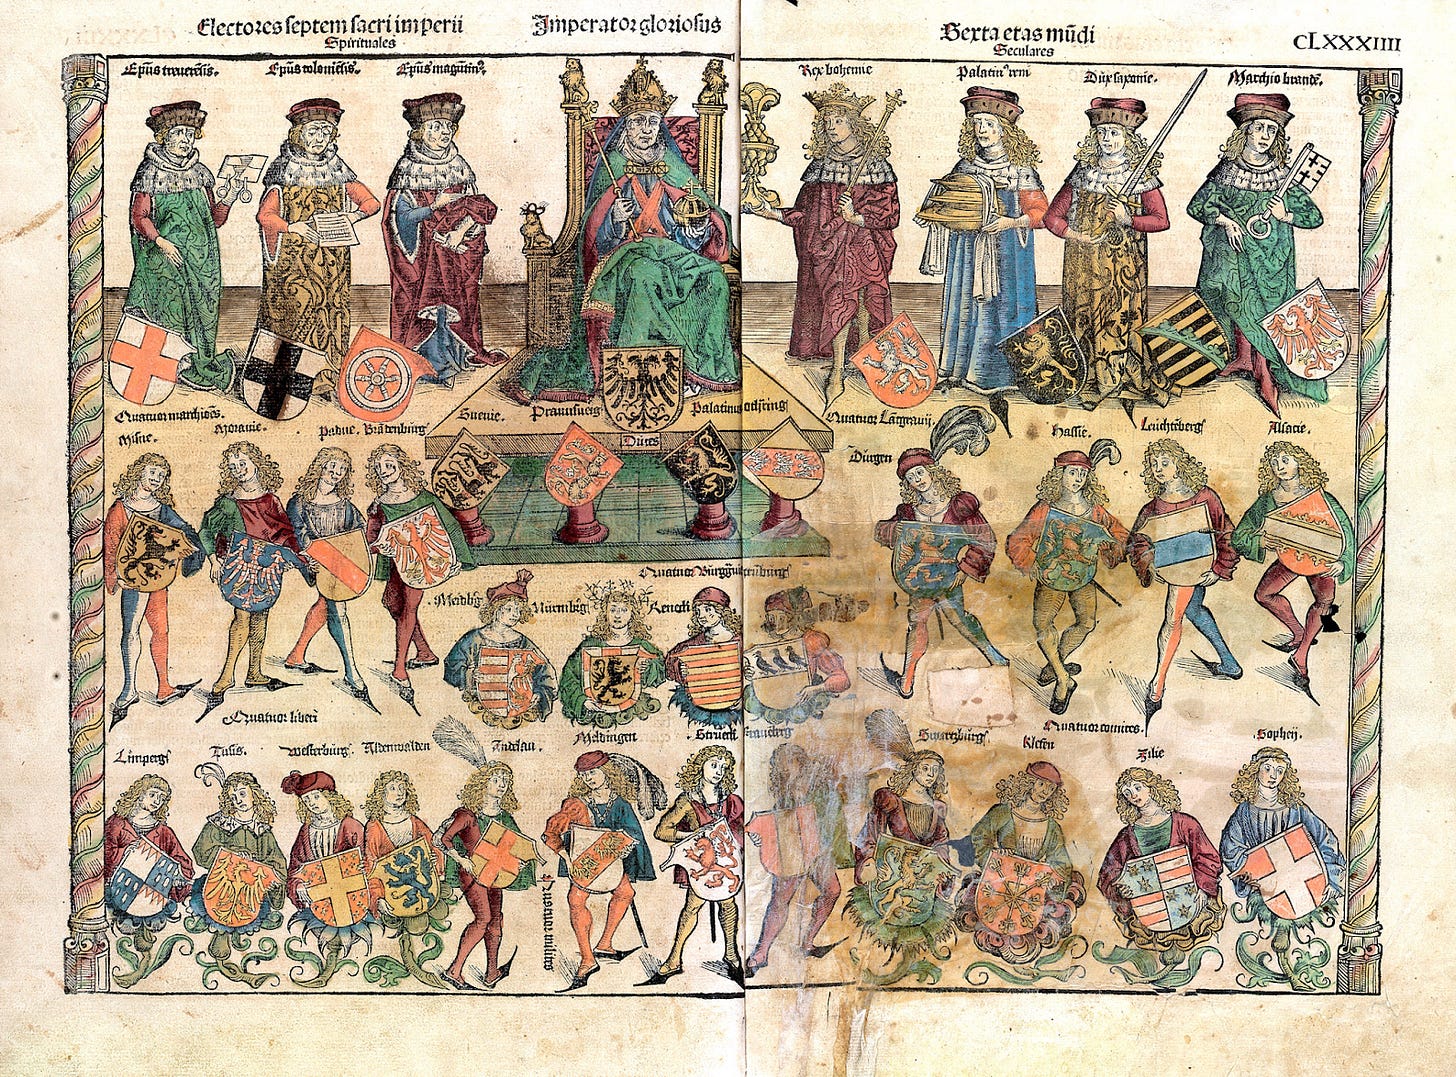 Electores septem sacri imperii
Spirituales
Imperator gloriosus
Sexta etas mūdi
Seculares
CLXXXIIII
Epūs treverēsis.
Epūs coloniēsis.
Epūs magūtinꝰ.
Rex bohemie
Palatinꝰ reni
Dux saxonie.
Marchio brandē.
Quatuor marchiōes.
Misne.
Moravie.
Padue.
Brādenburg
Suevie.
Praunsweig
Duces
Palatinus
Quatuor Lātgravij.
Dūrgen
Hassie.
Leuchtēberg
Alsacie.
Quatuor
Meidbg
Nūrmbg
Reneck
Quatuor liberi
Limperg
Tusis.
Westerburg.
Aldenwalden
Andelau.
Meldingen
Strueck
Quatuor comites.
Swartzburg
Kleten
Zilie
Sophoij.